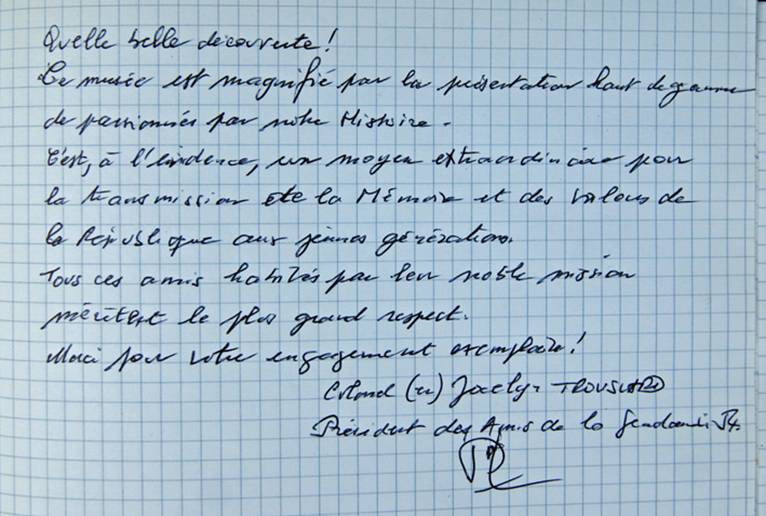 Quelle belle découverte !
Ce musée est magnifié par la présentation haut de gamme
de passionnés par notre Histoire.
C'est, à l'évidence, un moyen extraordinaire pour
la transmission de la Mémoire et des valeurs de
la République aux jeunes générations.
Tous ces amis habités par leur noble mission
méritent le plus grand respect.
Merci pour votre engagement exemplaire !
Colonel (er) Jocelyn
Président des Amis de la Gendarmerie